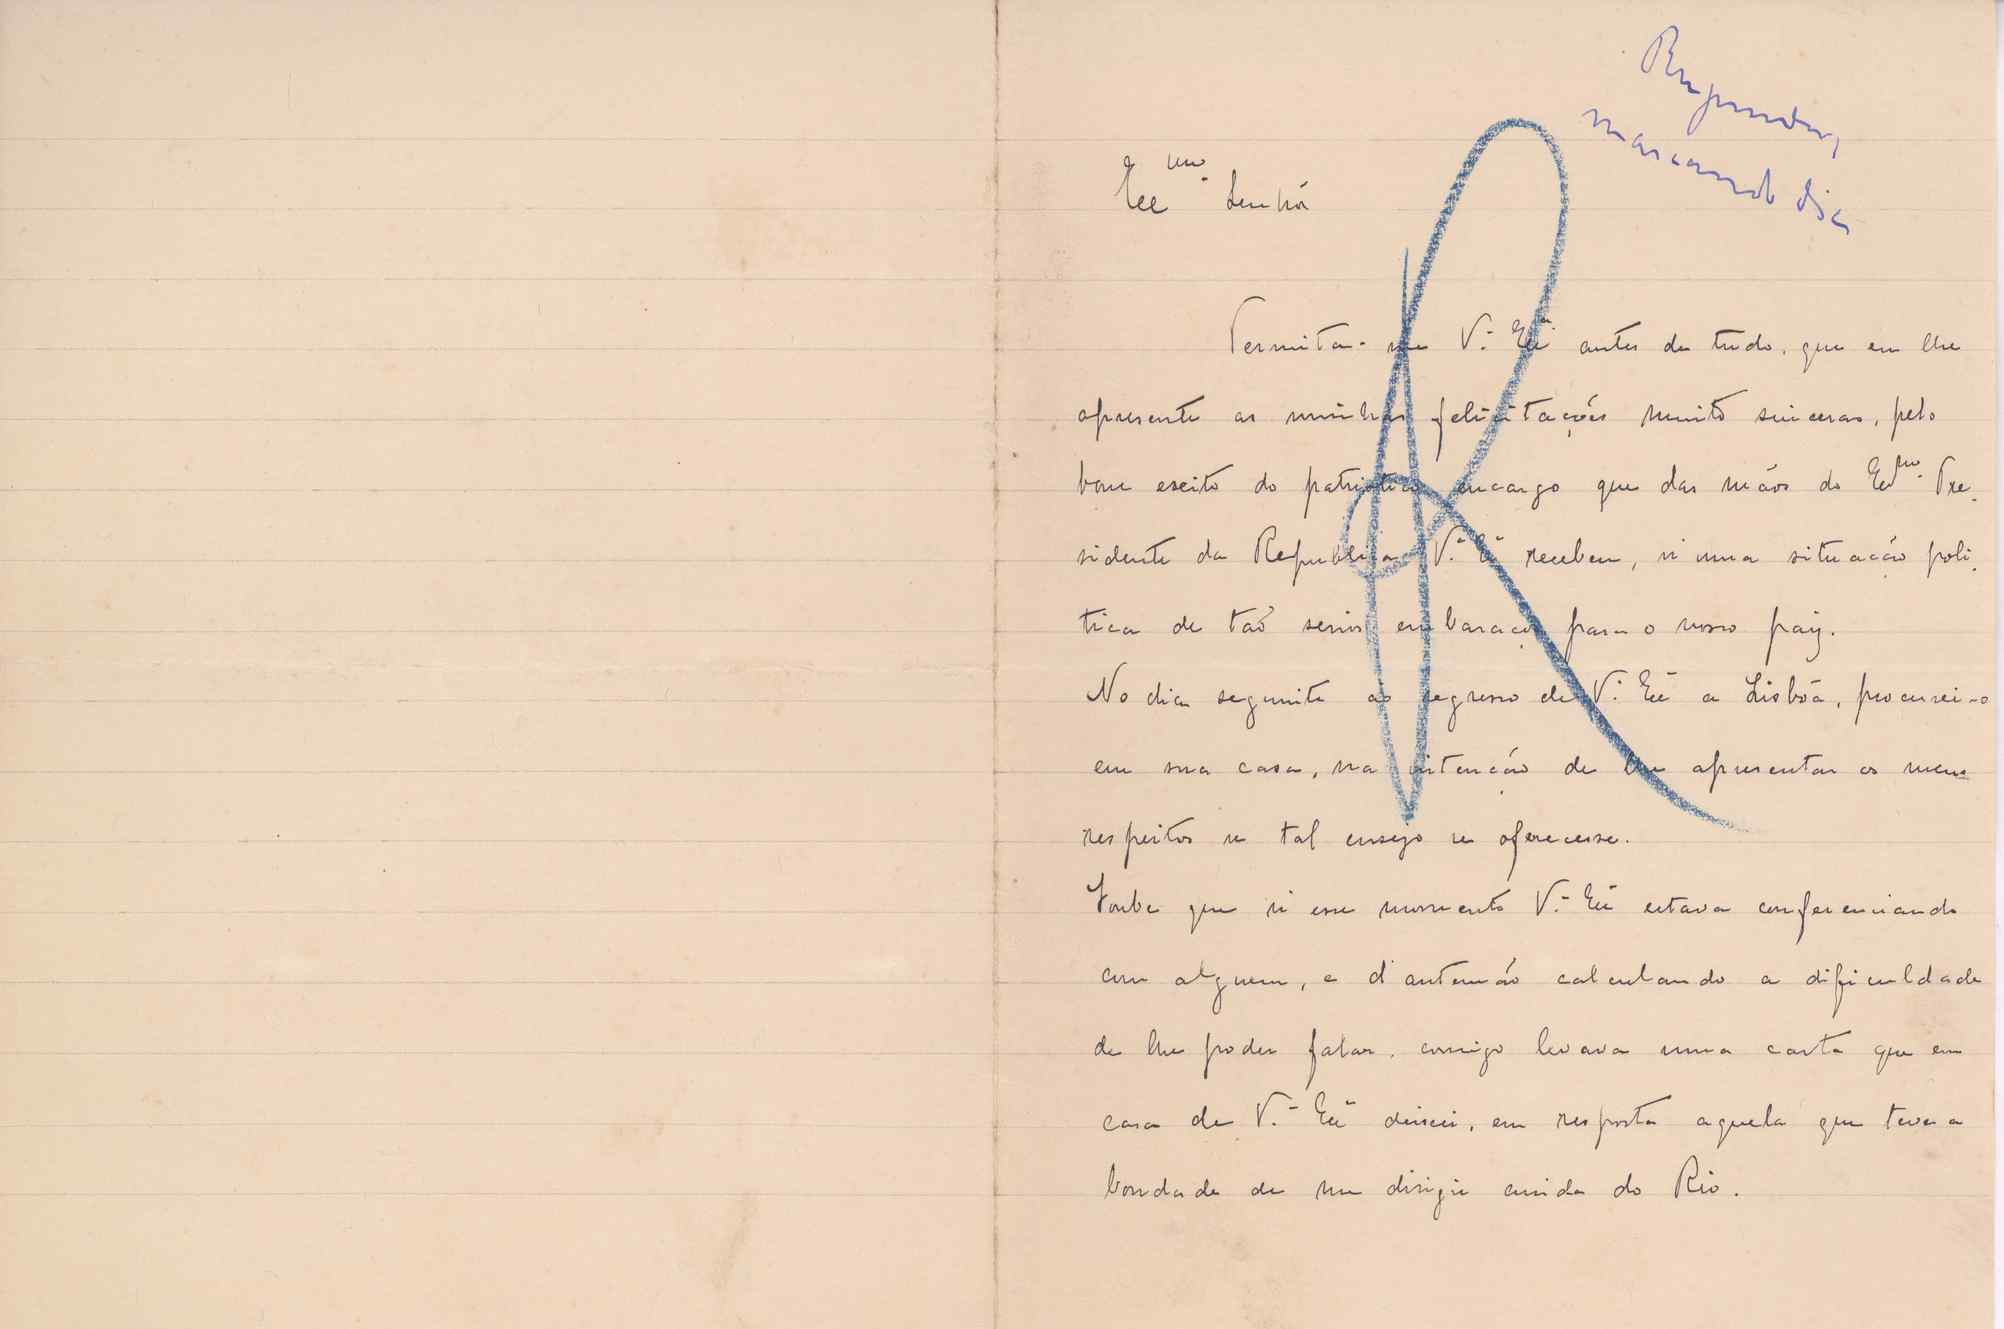 Responder,
marcando dia
Exmo. Senhôr
Permita-me V.ª Exª antes de tudo, que eu lhe
apresente as minhas felicitações muito sinceras, pelo
bom exito do patriotico encargo que das mãos do Exmo. Pre-
sidente da Republica V.ª Exª recebeu, n'uma situação poli-
tica de tão serios embaraços para o nosso paiz.
No dia seguinte ao regresso de V.ª Exª a Lisbôa, procurei-o
em sua casa, na intenção de lhe apresentar os meus
respeitos se tal ensejo se oferecesse.
Soube que n'esse momento V.ª Exª estava conferenciando
com alguem, e d'antemão calculando a dificuldade
de lhe poder falar, comigo levava uma carta que em
casa de V.ª Exª deixei, em resposta aquela que teve a
bondade de me dirigir ainda do Rio.